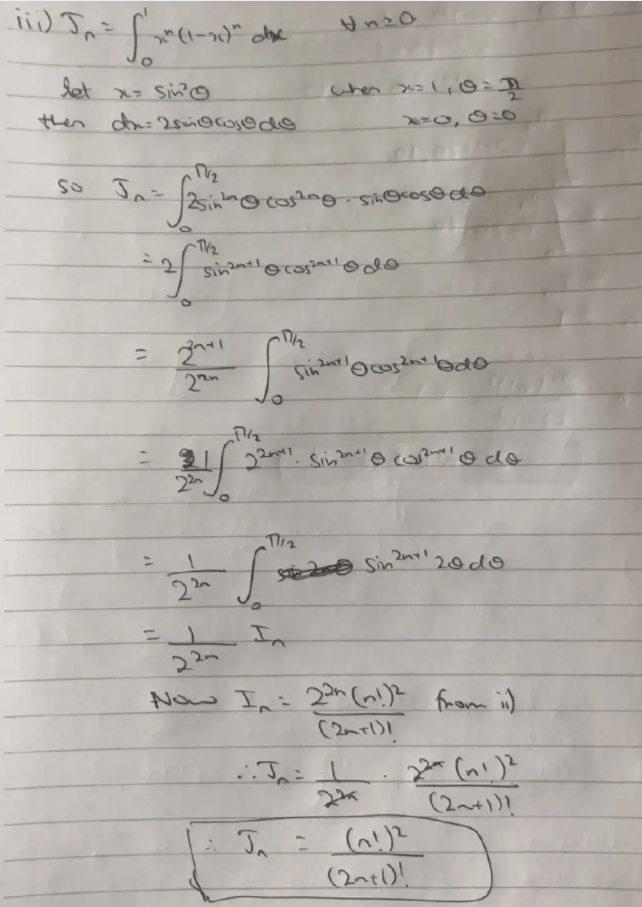 iii) J_n = ∫_0^1 x^n (1-x)^n dx ∀ n ≥ 0
let x = sin²θ when x=1, θ = π/2
then dx = 2sinθcosθdθ x=0, θ=0
so J_n = ∫_0^{π/2} 2sin^{2n}θ cos^{2n}θ · sinθcosθdθ
= 2∫_0^{π/2} sin^{2n+1}θ cos^{2n+1}θ dθ
= 2^{2n+1}/2^{2n} ∫_0^{π/2} sin^{2n+1}θ cos^{2n+1}θ dθ
= 1/2^{2n} ∫_0^{π/2} 2^{2n+1} · sin^{2n+1}θ cos^{2n+1}θ dθ
= 1/2^{2n} ∫_0^{π/2} sin^{2n+1} 2θ dθ
= 1/2^{2n} I_n
Now I_n = 2^{2n}(n!)²/(2n+1)! from ii)
∴ J_n = 1/2^{2n} · 2^{2n}(n!)²/(2n+1)!
∴ J_n = (n!)²/(2n+1)!